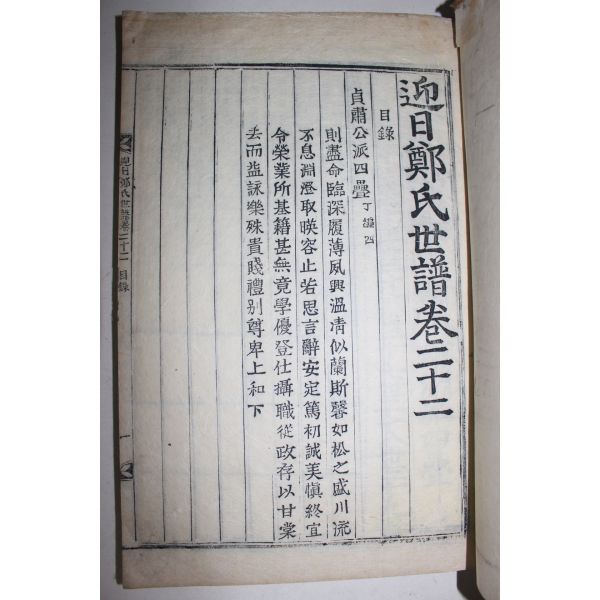 迎日鄭氏世譜卷二十二
目錄
貞肅公派四疊 丁編四
則盡命臨深履薄夙興溫凊似蘭斯馨如松之盛川流
不息淵澄取暎容止若思言辭安定篤初誠美愼終宜
令榮業所基籍甚無竟學優登仕攝職從政存以甘棠
去而益詠樂殊貴賤禮別尊卑上和下
迎日鄭氏世譜卷二十二 目錄 一